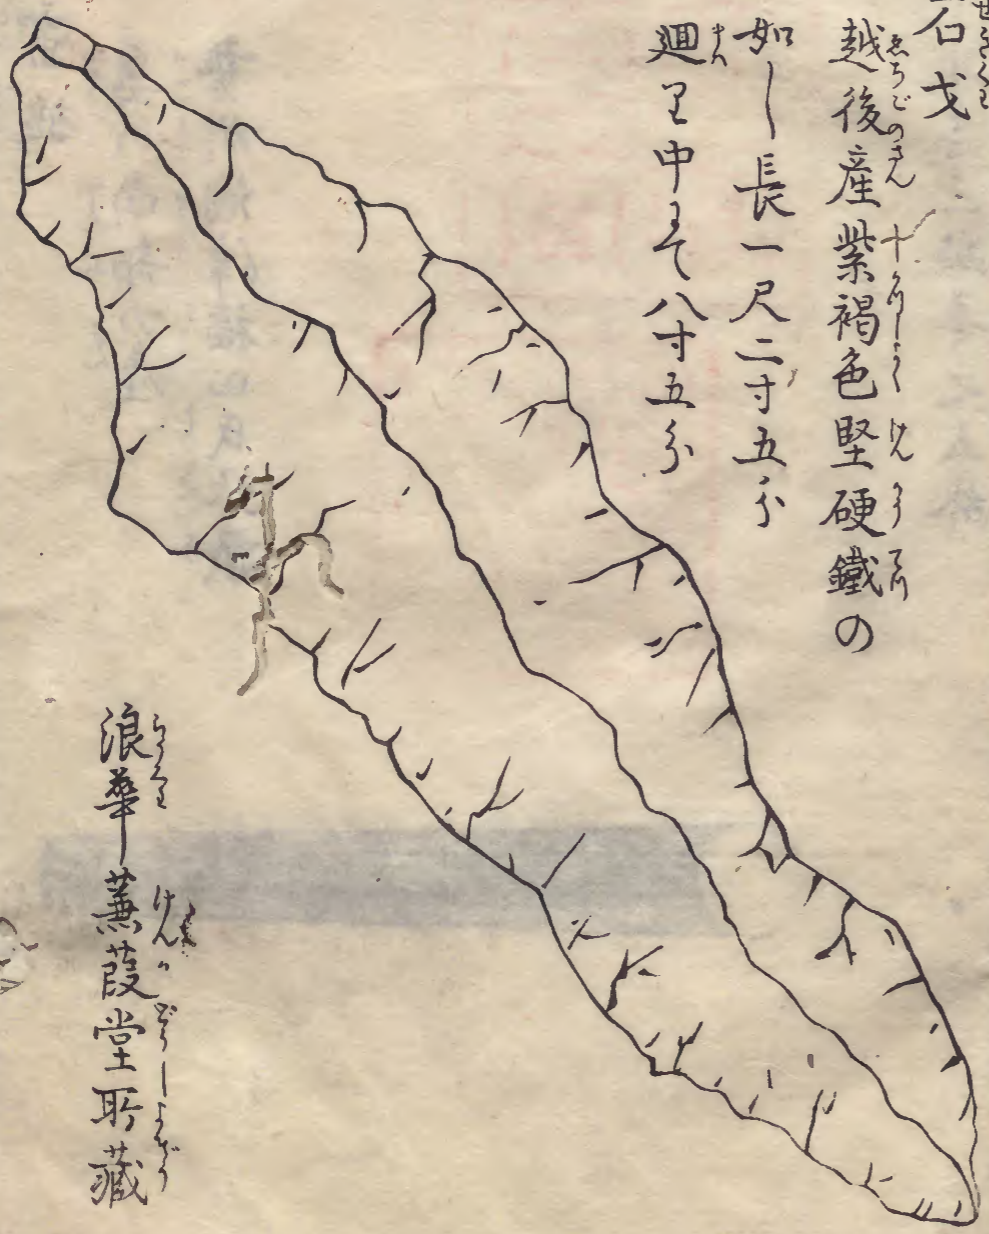 石戈
越後産紫褐色堅硬鐵の
如し長一尺二寸五分
廻里中にて八寸五分
浪華蒹葭堂所藏